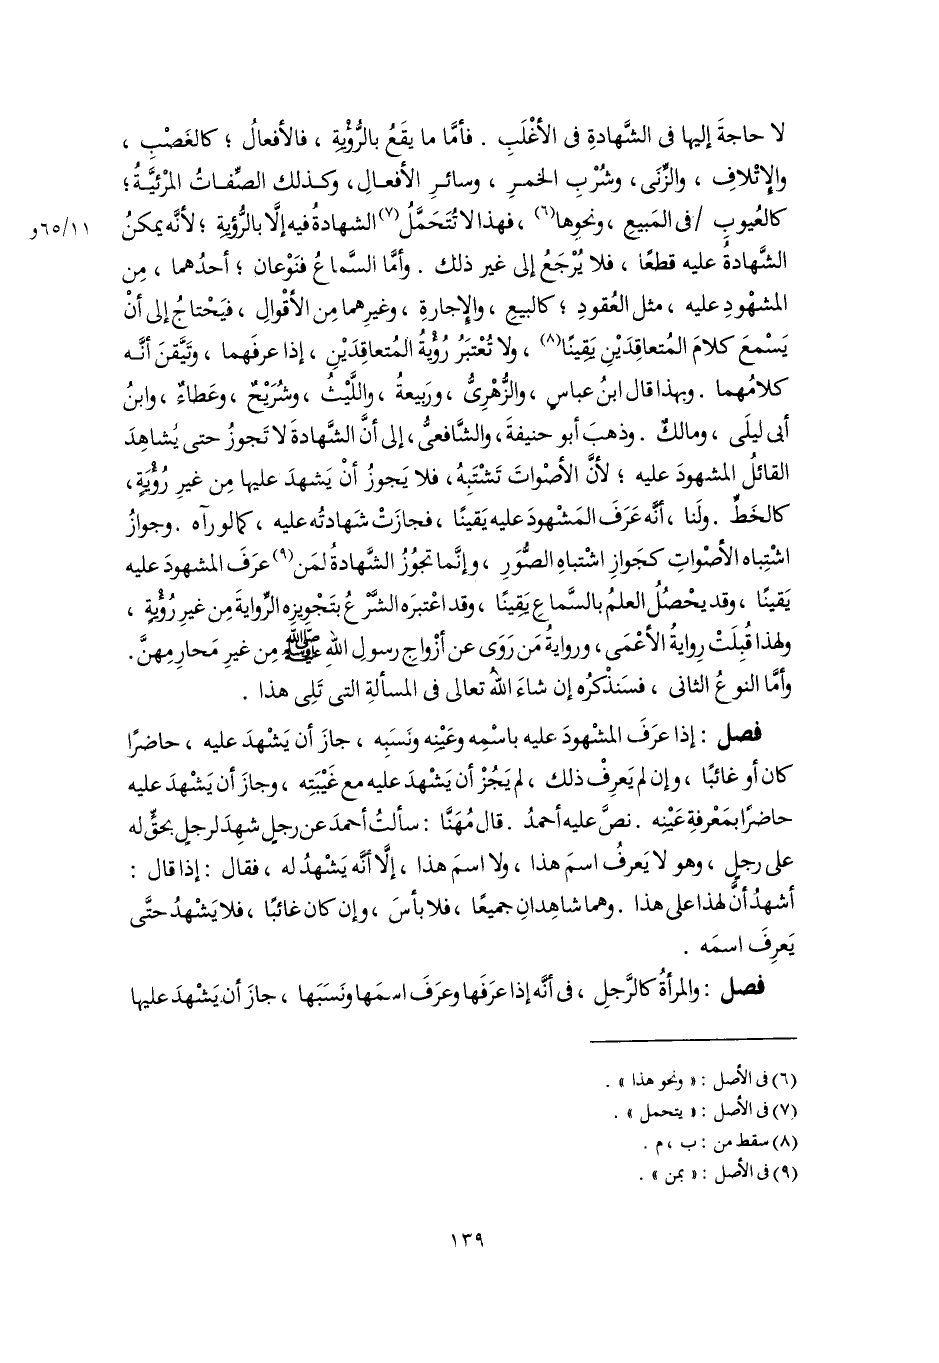 لا حاجةَ إليها فى الشَّهادةِ فى الأغْلَبِ . فأمَّا ما يقَعُ بالرُّؤْيةِ ، فالأفعالُ ؛ كالغَصْبِ ،
والإِتْلافِ ، والزِّنَى، وشُرْبِ الخمرِ ، وسائرِ الأفعالِ، وكذلك الصِّفاتُ المرْئيَّةُ؛
كالعُيوبِ /فى المَبيعِ ،ونحوِها(٦) ،فهذا لا تُتَحَمَّلُ(٧)الشهادةُ فيه إلَّا بالرُّؤيةِ ؛لأنَّه يمكنُ
١١/٦٥و
الشَّهادةُ عليه قطعًا ، فلا يُرْجَعُ إلى غير ذلك . وأمَّا السَّماعُ فنَوْعان ؛ أحدُهما ، مِن
المشهْودِ عليه ،مثل العُقودِ ؛ كالبيعِ ،والإِجارةِ ،وغيرِهما مِن الأقْوالِ ،فيَحْتاجُ إلى أنْ
يَسْمعَ كلامَ المُتعاقِدَيْنِ يَقِينًا(٨) ،ولا تُعْتبَرُ رُؤْيةُ المُتعاقدَيْنِ ،إذا عرفَهما ،وتَيَقَّنَ أنَّه
كلامُهما . وبهذا قال ابنُ عباسٍ ،والزُّهْرِىُّ ،ورَبِيعةُ ،واللَّيْثُ ،وشُرَيْحٌ ،وعَطاءٌ ،وابنُ
أبى ليلَى ،ومالكٌ . وذهبَ أبو حنيفةَ، والشَّافعىُّ، إلى أنَّ الشَّهادةَ لا تَجوزُ حتى يُشاهِدَ
القائلُ المشهودَ عليه ؛ لأنَّ الأصْواتَ تَشْتَبِهُ، فلا يَجوزُ أنْ يَشهدَ عليها مِن غيرِ رُؤْيَةٍ،
كالخَطِّ . ولَنا ،أنَّه عَرَفَ المَشْهودَ عليه يَقينًا ،فجازَتْ شَهادتُه عليه ،كما لو رآه .وجوازُ
اشْتِباه الأصْواتِ كجَوازِ اشْتباهِ الصُّوَرِ ،وإنَّما تجوُزُ الشَّهادةُ لمَن(٩)عرَفَ المشهودَ عليه
يَقينًا ،وقد يحْصُلُ العلمُ بالسَّماعِ يَقِينًا ،وقد اعتبرَه الشَّرْعُ بتَجْويزِه الرِّوايةَ مِن غيرِ رُؤْيةٍ ،
ولهذا قُبِلَتْ رِوايةُ الأعْمَى، وروايةُ مَن رَوَى عن أزْواجِ رسولِ اللهِ ﷺ مِن غيرِ مَحارِمِهنَّ.
وأمَّا النوعُ الثانى ، فسَنذْكرُه إن شاءَ اللهُ تعالى فى المسألةِ التى تَلِى هذا .
فصل : إذا عرَفَ المشْهودَ عليه باسْمِه وعَيْنِه ونَسَبِه ، جازَ أن يَشْهدَ عليه ، حاضرًا
كان أو غائبًا ،وإن لم يَعرِفْ ذلك ،لم يَجُزْ أن يَشْهدَ عليه مع غَيْبَتِه ،وجازَ أن يَشْهدَ عليه
حاضرًا بمَعْرفةِ عَيْنِه . نصَّ عليه أحمدُ . قال مُهَنَّا : سألتُ أحمدَ عن رجلٍ شهِدَ لرجلٍ بحقٍّ له
على رجلٍ ، وهو لا يَعرفُ اسمَ هذا ، ولا اسمَ هذا ، إلَّا أنَّه يَشْهدُ له ، فقال : إذا قال :
أشهدُ أنَّ لهذا على هذا . وهما شاهِدانِ جميعًا ،فلا بأسَ ،وإن كان غائبًا ،فلا يَشْهدُ حتَّى
يَعرِفَ اسمَه .
فصل : والمرأةُ كالرَّجلِ ، فى أنَّه إذا عرَفَها وعرَفَ اسمَها ونَسَبَها ، جازَ أن يَشْهدَ عليها
(٦) فى الأصل : « ونحو هذا » .
(٧) فى الأصل : « يتحمل » .
(٨) سقط من : ب ، م .
(٩) فى الأصل : « بمن » .
١٣٩